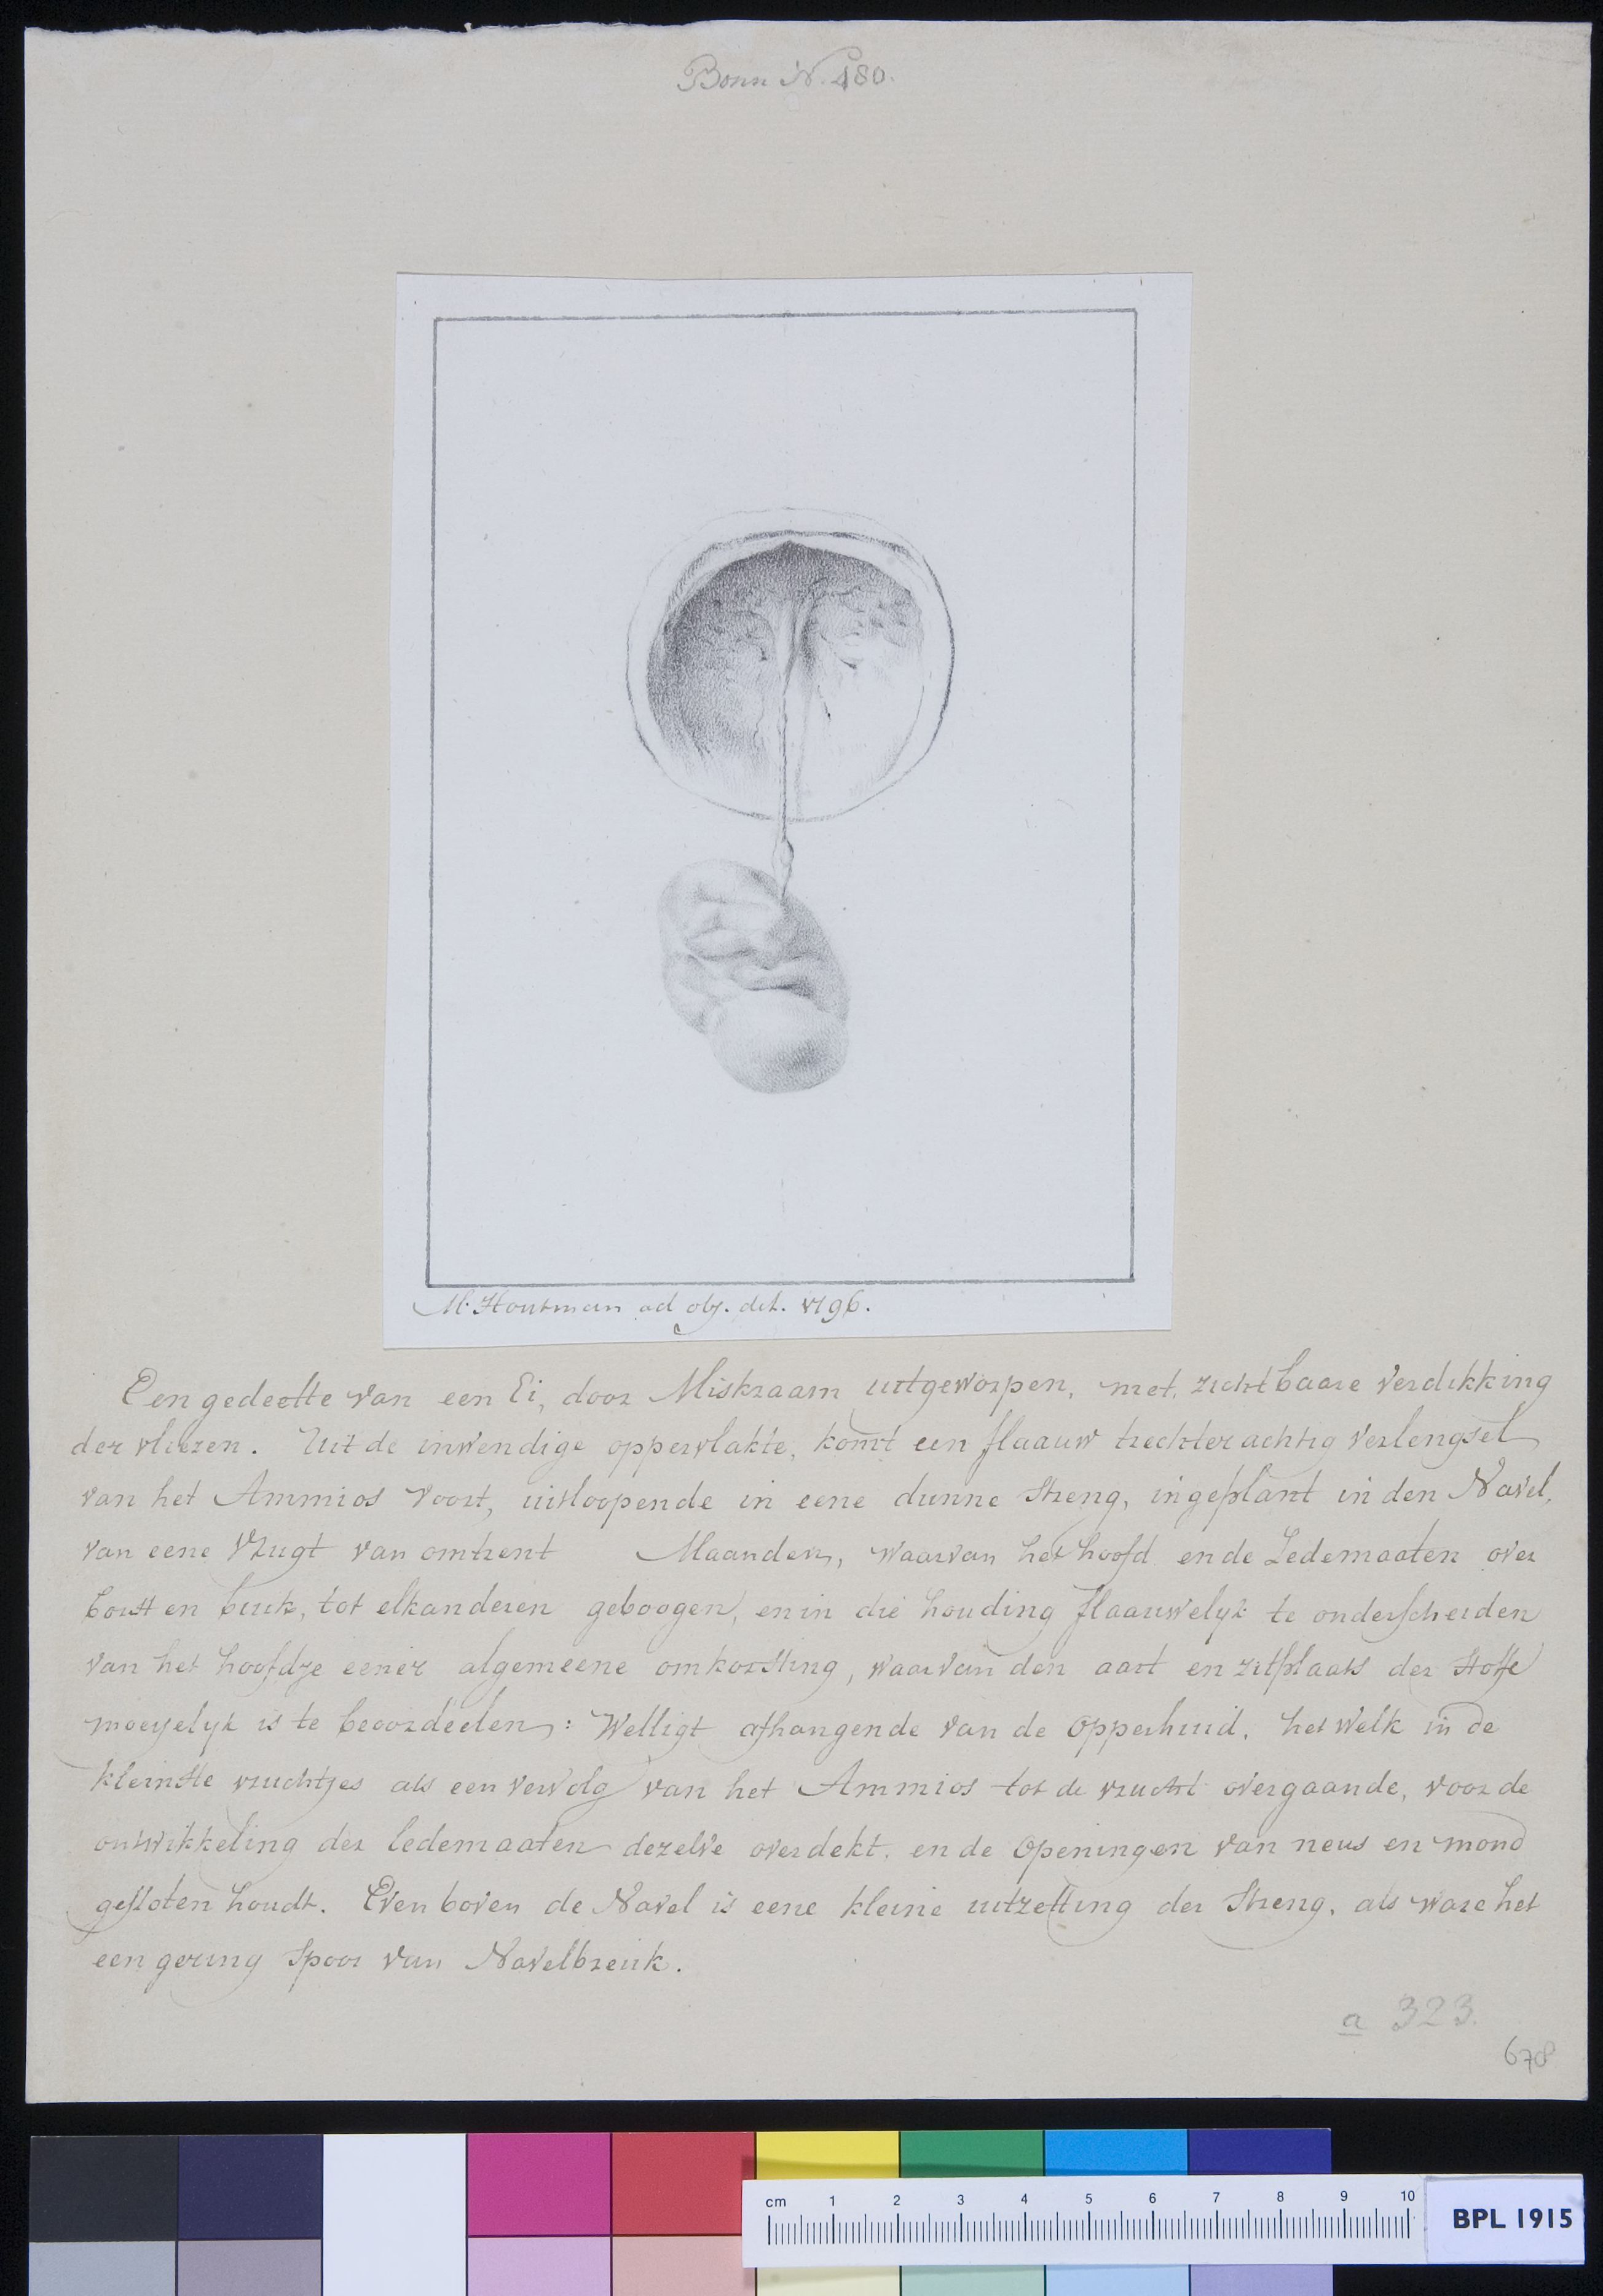 Bonn N. 480.
M. Houtman ad obj. del. 1796.
Een gedeelte van een Ei, door Miskraam uitgeworpen, met zichtbaare Verdikking
der vliezen. Uit de inwendige oppervlakte, komt een flaauw trechterachtig Verlengsel
van het Ammios voort, uitloopende in eene dunne Streng, ingeplant in den Navel,
van eene Vrugt van omtrent Maanden, waarvan het hoofd en de Ledemaaten over
borst en buik, tot elkanderen geboogen, en in die houding flaauwelyk te onderscheiden
van het hoofdje eener algemeene omkorsting, waarvan den aart en zitplaats der Stoffe
moeyelyk is te beoordeelen: Welligt afhangende van de Opperhuid, het welk in de
kleinste vruchtjes als een vervolg van het Ammios tot de vrucht overgaande, voor de
ontwikkeling der ledemaaten dezelve overdekt, en de Openingen van neus en mond
gesloten houdt. Even boven de Navel is eene kleine uitzetting der Streng, als ware het
een gering Spoor van Navelbreuk.
a 323.
678
cm 1 2 3 4 5 6 7 8 9 10
BPL 1915